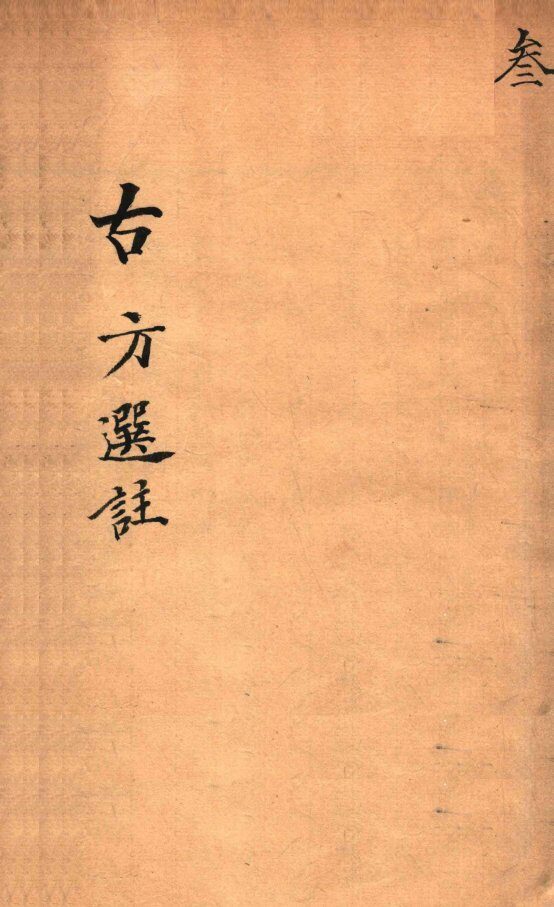 叁
古方選註